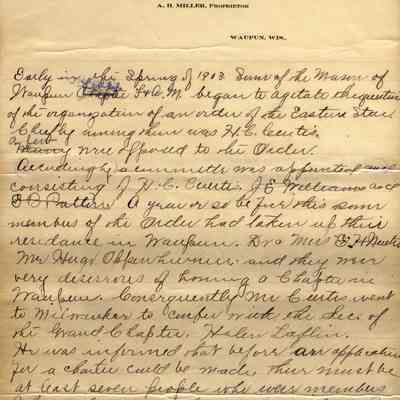 A. H. MILLER, PROPRIETOR
WAUPUN, WIS.
Early in the Spring of 1903 Some of the Mason of
Waupun F & A. M. began to agitate the question
of the organization of an order of the Eastern Star
Chiefly among them was H. C. Curtis.
a few
Many were opposed to the Order.
Accordingly a committee was appointed and
consisting of H. C. Curtis J. E. Williams and
Patten A year or so before this some
members of the Order had taken up their
residence in Waupun. Dr & Mrs
Mrs Hugo Oppenheimer and they were
very desirous of having a Chapter in
Waupun. Consequently Mr Curtis went
to Milwaukee to confer with the Sec. of
the Grand Chapter, Helen Laflin.
He was informed that before an application
for a charter could be made, there must be
at least seven people who were members